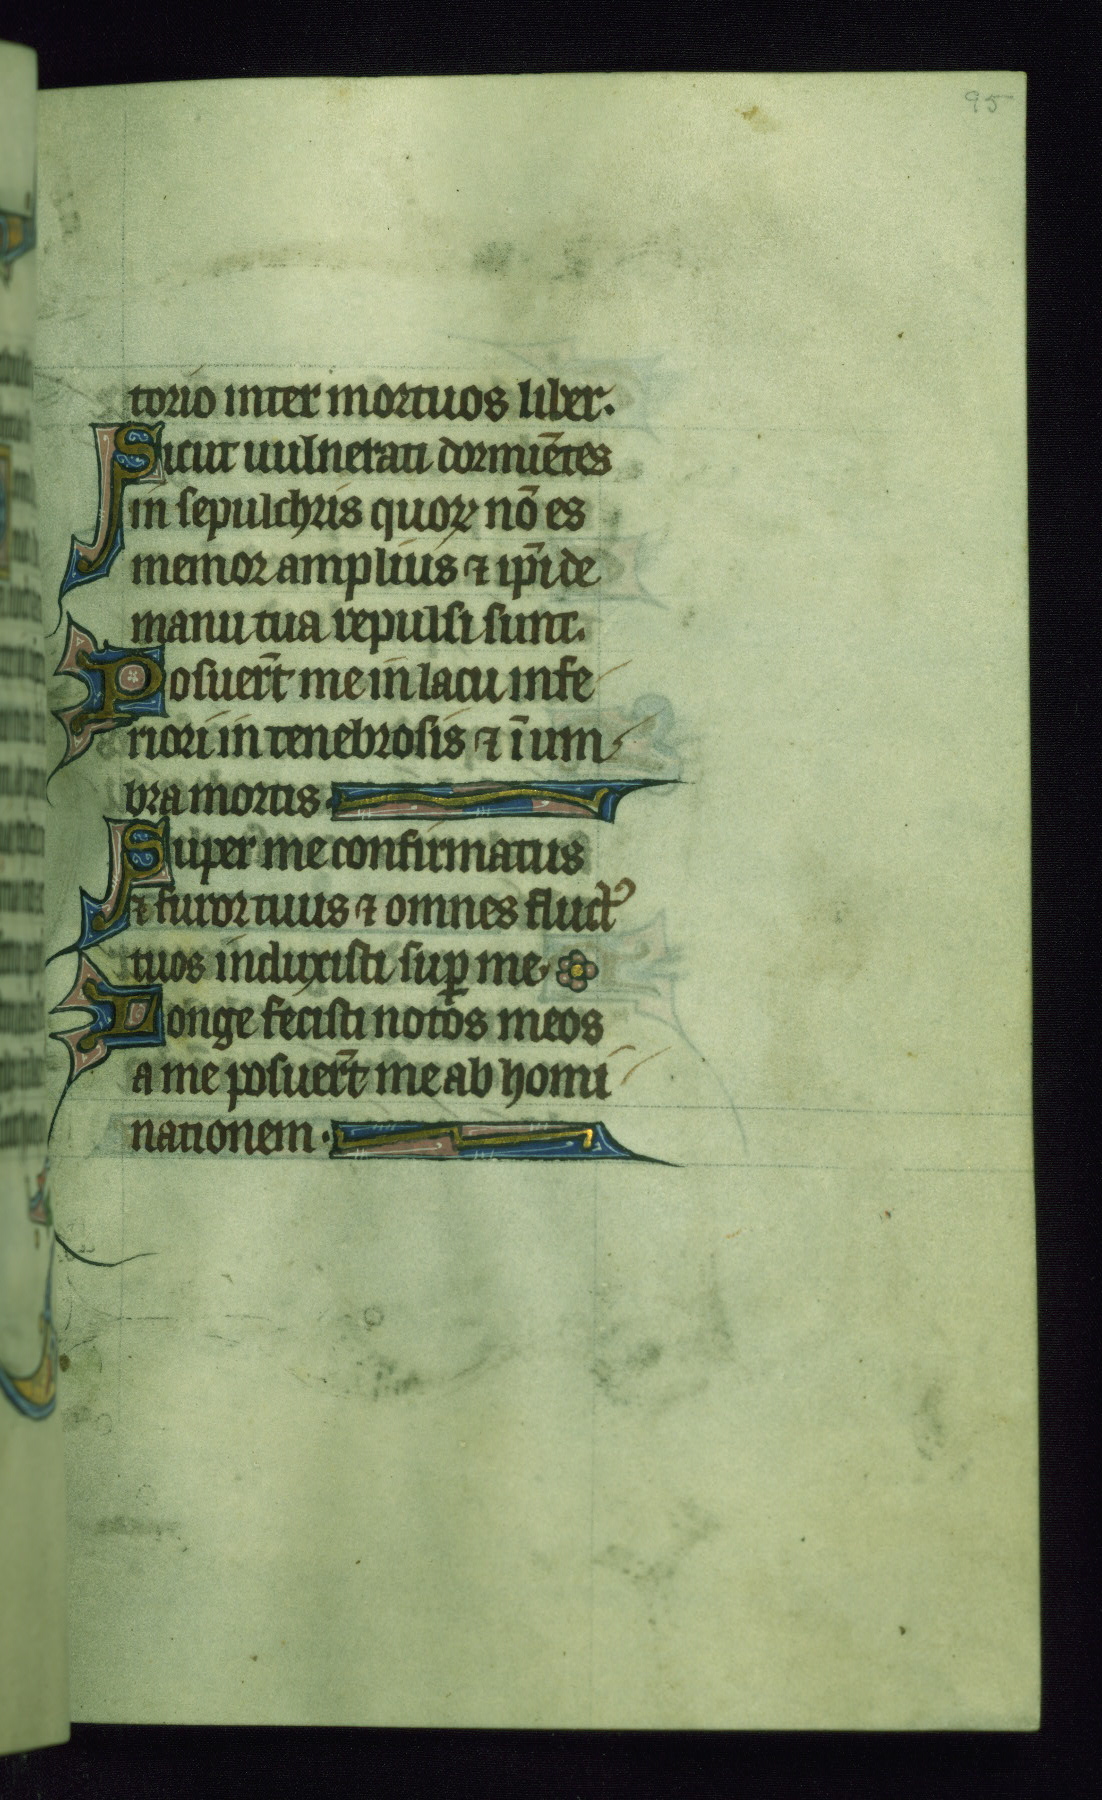 95
torio inter mortuos liber.
Sicut uulnerati dormiẽtes
in sepulchris quoꝝ nõ es
memor amplius ⁊ ip̃i de
manu tua repulsi sunt.
Posuer̃t me in lacu infe
riori in tenebrosis ⁊ ĩ um
bra mortis
Super me confirmatus
⁊ furor tuus ⁊ omnes fluctꝰ
tuos induxisti suꝑ me
Longe fecisti notos meos
a me posuer̃t me ab homi
nationem.